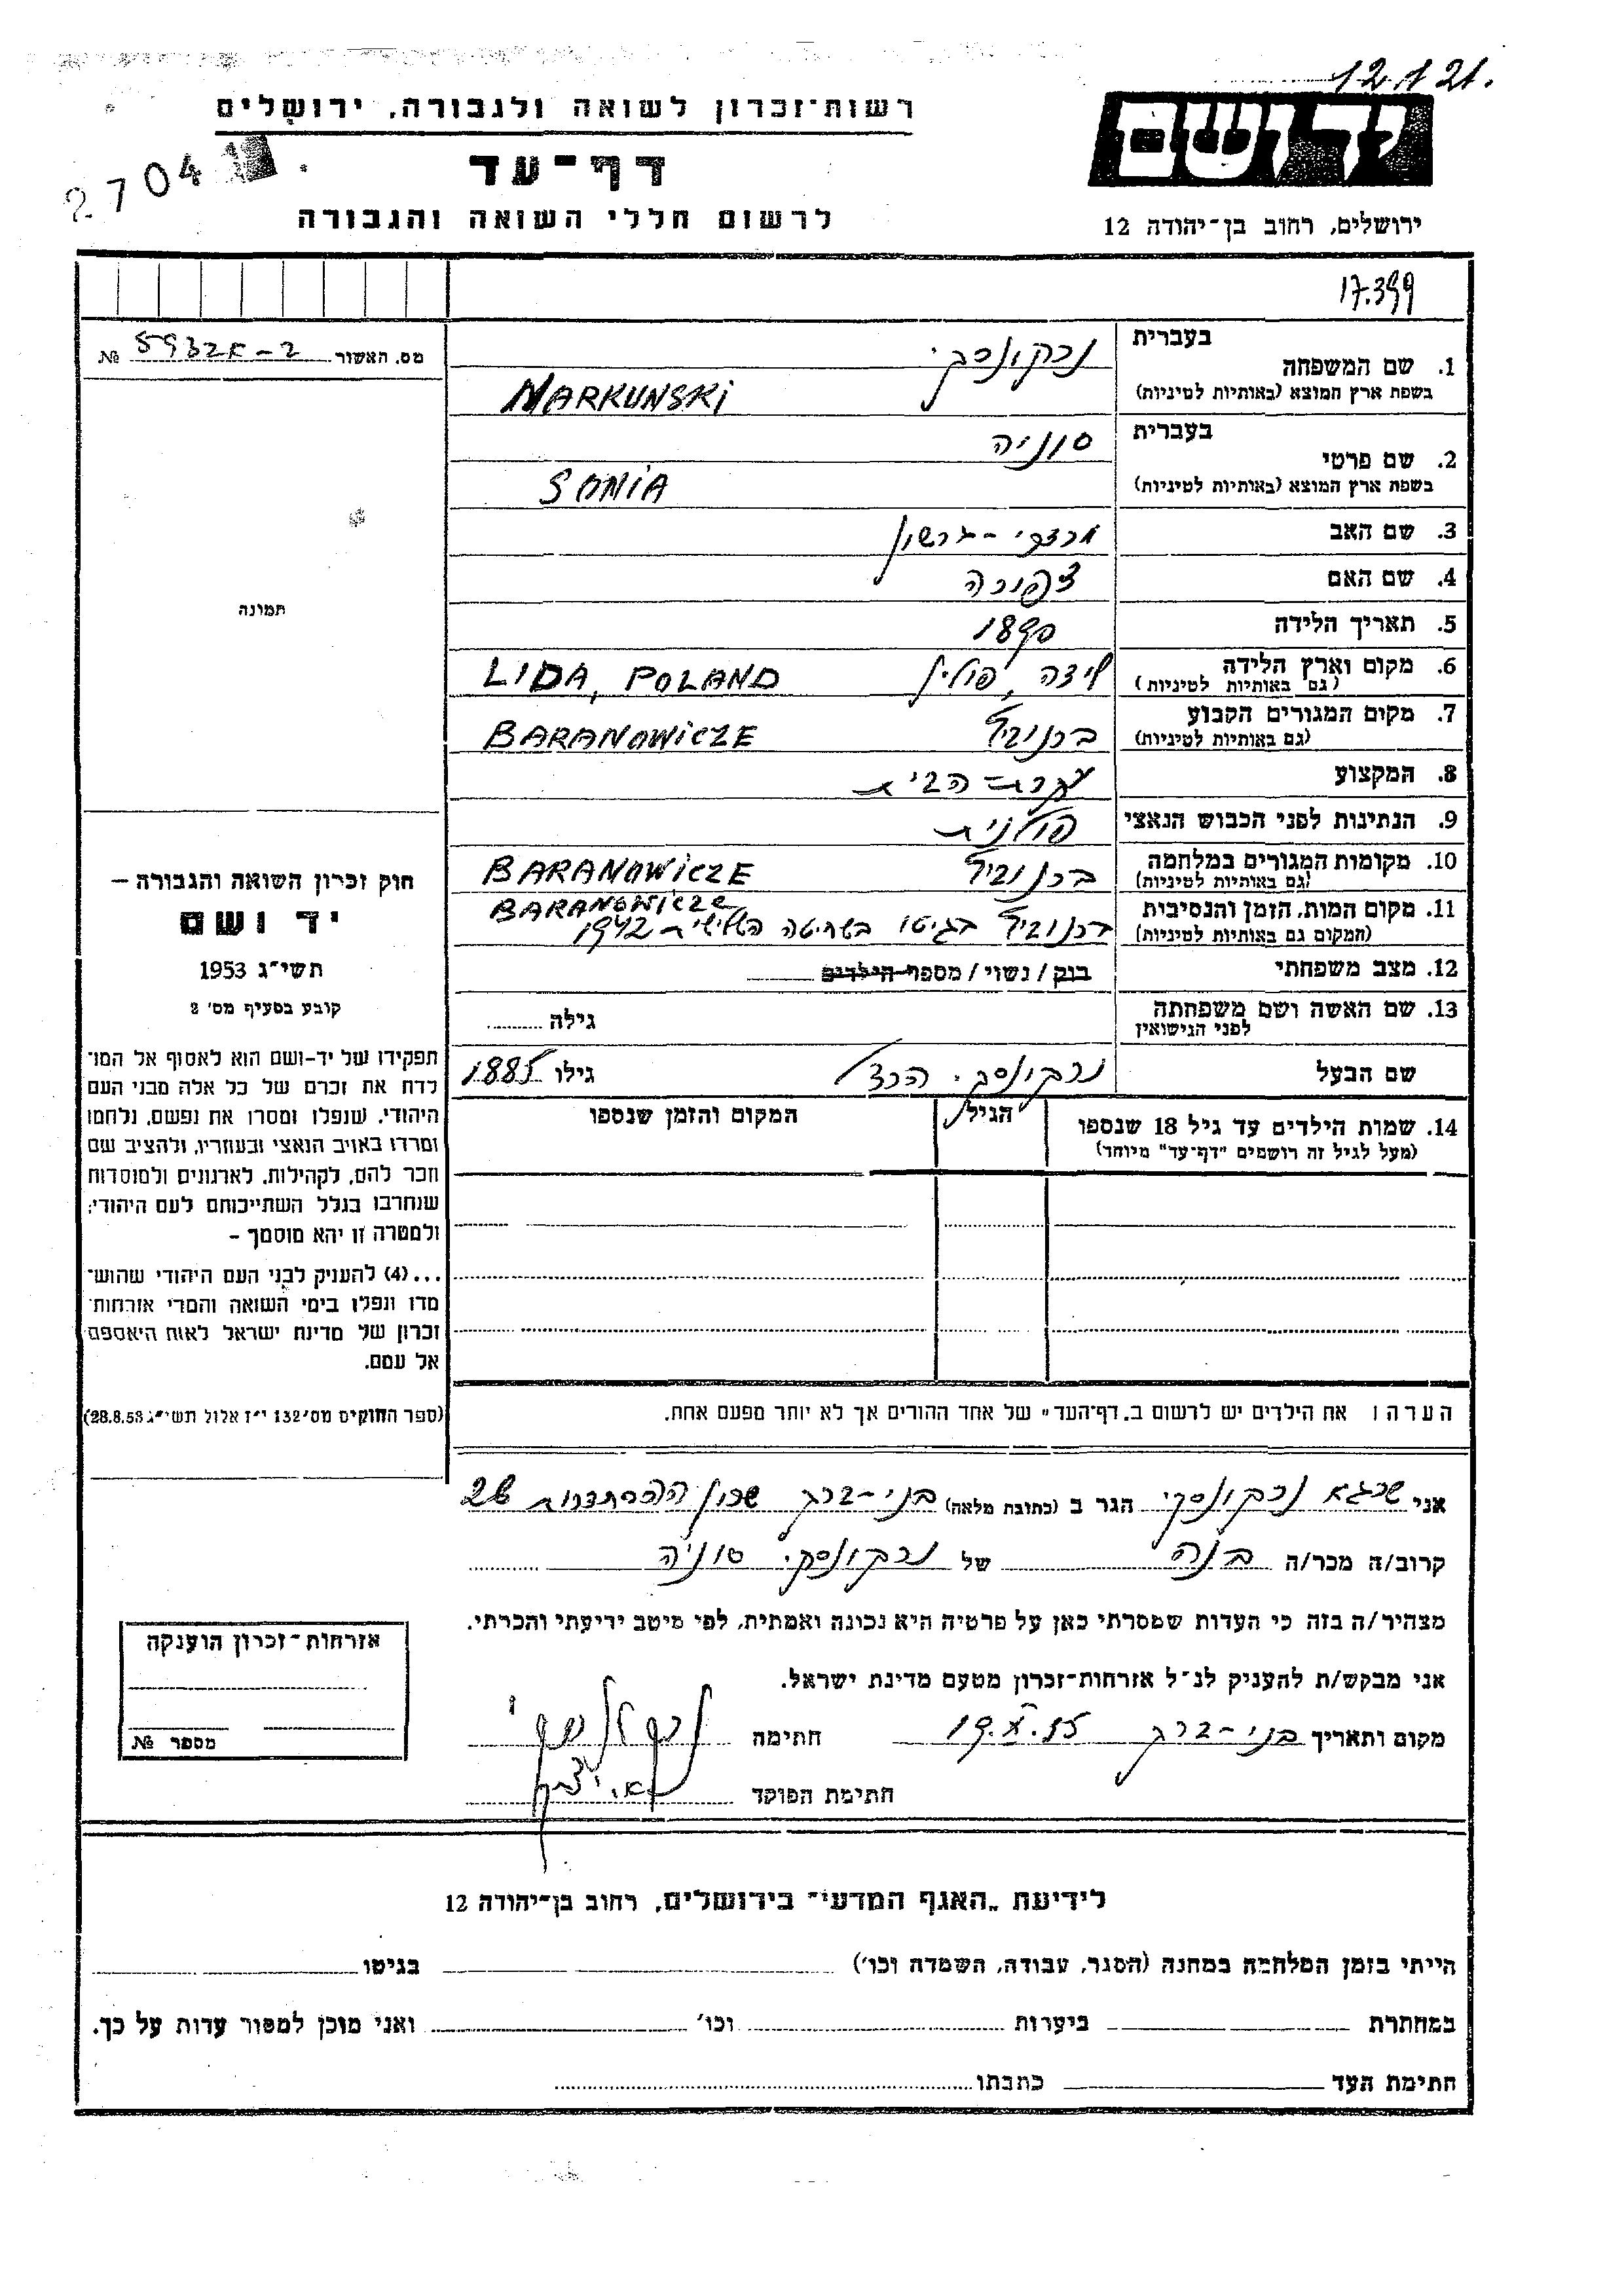 12.1.21.
רשות־זכרון לשואה ולגבורה, ירושלים
יד ושם
דף־עד
2704
לרשום חללי השואה והגבורה
ירושלים, רחוב בן־יהודה 12
17.399
מס. האשור №
בעברית
1. שם המשפחה נרקונסקי
בשפת ארץ המוצא (באותיות לטיניות) NARKUNSKI
בעברית
2. שם פרטי סוניה
בשפת ארץ המוצא (באותיות לטיניות) SONIA
3. שם האב מרדכי-גרשון
4. שם האם צפורה
5. תאריך הלידה 1890
6. מקום וארץ הלידה לידה, פולין LIDA, POLAND
(גם באותיות לטיניות)
7. מקום המגורים הקבוע ברנוביץ BARANOWICZE
(גם באותיות לטיניות)
8. המקצוע עקרת-הבית
9. הנתינות לפני הכבוש הנאצי פולנית
10. מקומות המגורים במלחמה ברנוביץ BARANOWICZE
(גם באותיות לטיניות)
BARANOWICZE
11. מקום המות, הזמן והנסיבות ברנוביץ בגיטו בשחיטה השלישית 1942
(המקום גם באותיות לטיניות)
12. מצב משפחתי רוק / נשוי / מספר הילדים
13. שם האשה ושם משפחתה גילה
לפני הנישואין
שם הבעל נרקונסקי הרצל גילו 1885
14. שמות הילדים עד גיל 18 שנספו הגיל המקום והזמן שנספו
(מעל לגיל זה רושמים "דף־עד" מיוחד)
תמונה
חוק זכרון השואה והגבורה –
יד ושם
תשי"ג 1953
קובע בסעיף מס' 2
תפקידו של יד-ושם הוא לאסוף אל המו־
לדת את זכרם של כל אלה מבני העם
היהודי, שנפלו ומסרו את נפשם, נלחמו
ומרדו באויב הנאצי ובעוזריו, ולהציב שם
וזכר להם, לקהילות, לארגונים ולמוסדות
שנחרבו בגלל השתייכותם לעם היהודי;
ולמטרה זו יהא מוסמך –
...(4) להעניק לבני העם היהודי שהוש־
מדו ונפלו בימי השואה והמרי אזרחות־
זכרון של מדינת ישראל לאות היאספם
אל עמם.
(ספר החוקים מס' 132 י"ז אלול תשי"ג 28.8.53)
הערה: את הילדים יש לרשום ב„דף־העד" של אחד ההורים אך לא יותר מפעם אחת.
אני שרגא נרקונסקי הגר ב (כתובת מלאה) בני-ברק שכון ההסתדרות 26
קרוב/ה מכר/ה בנה של נרקונסקי סוניה
מצהיר/ה בזה כי העדות שמסרתי כאן על פרטיה היא נכונה ואמתית, לפי מיטב ידיעתי והכרתי.
אני מבקש/ת להעניק לנ"ל אזרחות־זכרון מטעם מדינת ישראל.
מקום ותאריך בני-ברק 19.X.55 חתימה
חתימת הפוקד
אזרחות־זכרון הוענקה
מספר №
לידיעת „האגף המדעי" בירושלים, רחוב בן־יהודה 12
הייתי בזמן המלחמה במחנה (הסגר, עבודה, השמדה וכו') בגיטו
במחתרת ביערות וכו' ואני מוכן למסור עדות על כך.
חתימת העד כתבתו